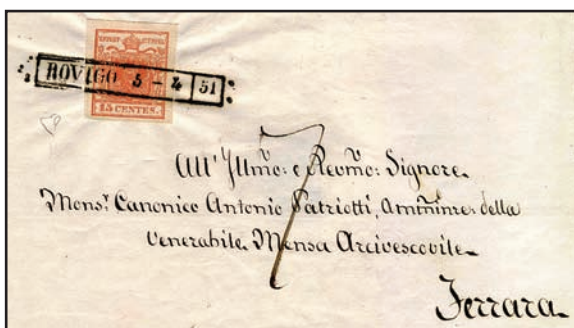 KKPOST STEMPEL
15 CENTES.
ROVIGO 5 - 4 51
7
All' Illmo: e Revmo: Signore.
Monsr: Canonico Antonio Patriotti, Amminre: della
Venerabile Mensa Arcivescovile
Ferrara